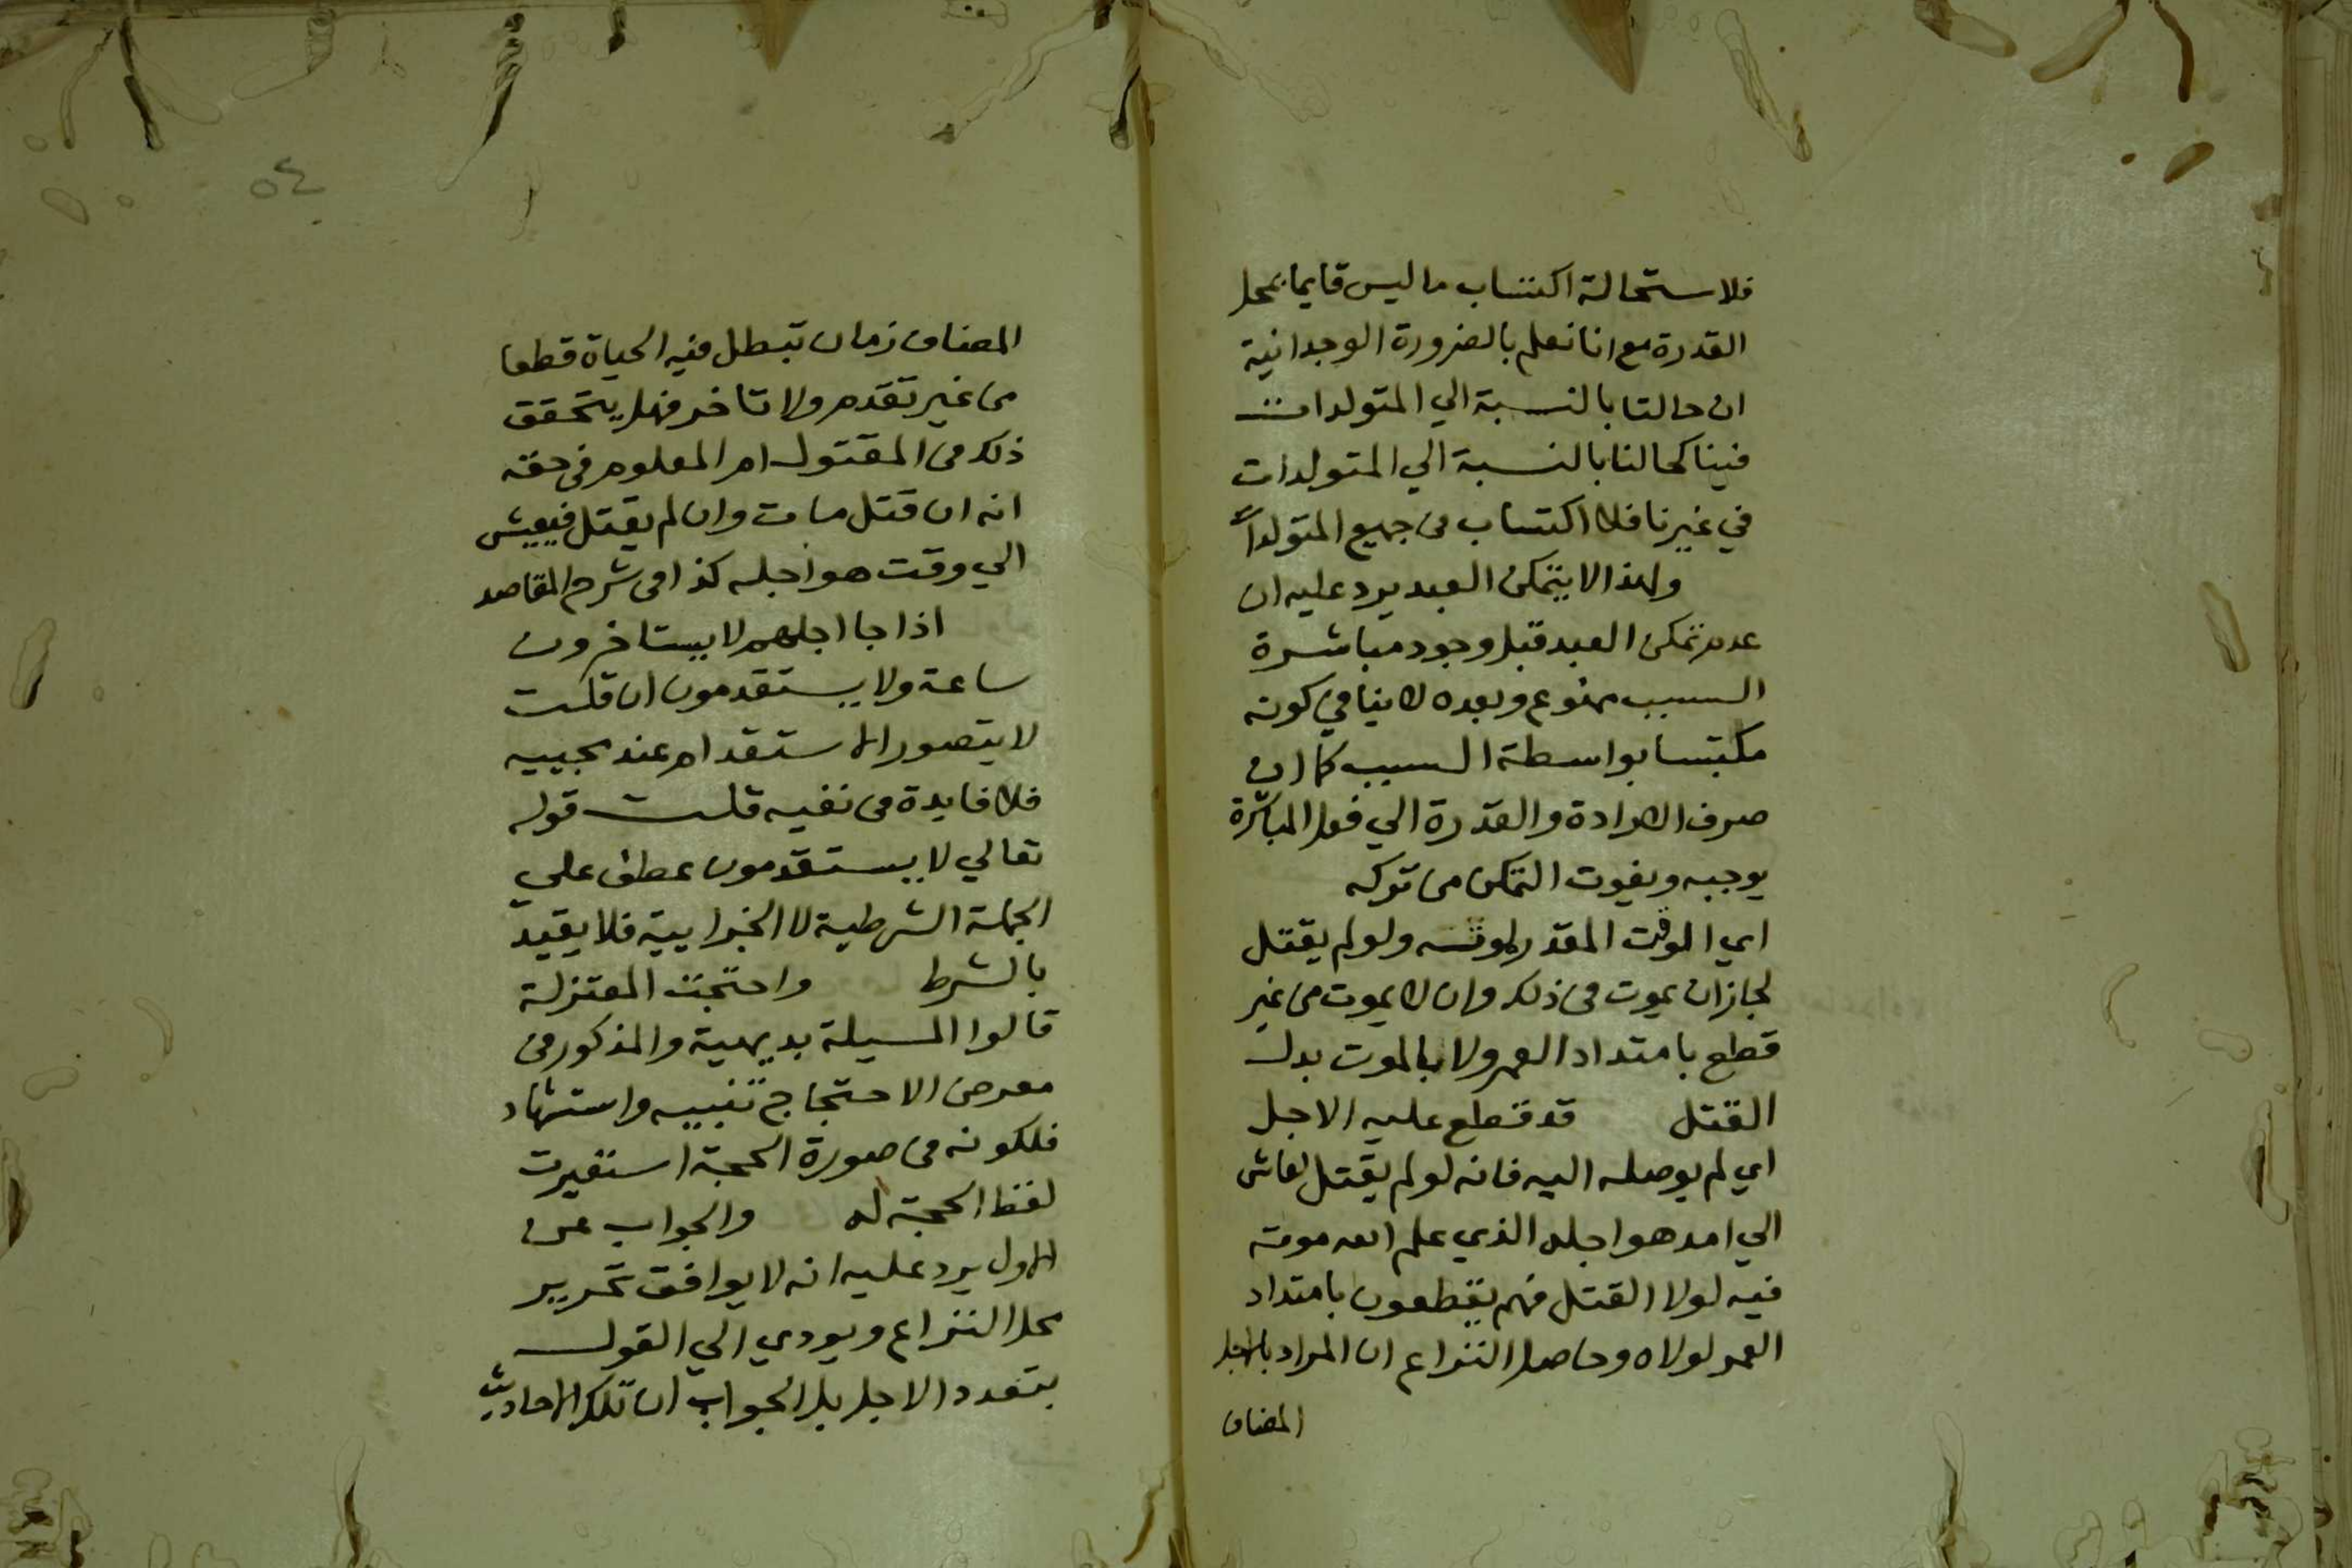 فلاستحالة اكتساب ما ليس قايما بمحل
القدرة مع انا نعلم بالضرورة الوجدانية
ان حالنا بالنسبة الي المتولدات
فينا كحالنا بالنسبة الي المتولدات
في غيرنا فلا اكتساب في جميع المتولدات
ولهذا لا يتمكن العبد يرد عليه ان
عدم تمكن العبد قبل وجود مباشرة
السبب ممنوع وبعده لا ينافي كونه
مكتسبا بواسطة السبب كما ان
صرف الارادة والقدرة الي فعل المباشرة
يوجبه ويفوت التمكن من تركه
اي الوقت المقدر لموته ولو لم يقتل
لجاز ان يموت في ذلك وان لا يموت من غير
قطع بامتداد العمر ولا بالموت بدل
القتل قد قطع عليه الاجل
اي لم يوصله اليه فانه لو لم يقتل لعاش
الي امد هو اجله الذي علم الله موته
فيه لولا القتل فهم يقطعون بامتداد
العمر لولاه وحاصل النزاع ان المراد بالاجل
المضاف
٥٤
المضاف زمان تبطل فيه الحياة قطعا
من غير تقدم ولا تاخر فهل يتحقق
ذلك في المقتول ام المعلوم في حقه
انه ان قتل مات وان لم يقتل فيعيش
الي وقت هو اجله كذا في شرح المقاصد
اذا جا اجلهم لا يستاخرون
ساعة ولا يستقدمون ان قلت
لا يتصور الاستقدام عند مجييه
فلا فايدة في نفيه قلت قوله
تعالي لا يستقدمون عطف علي
الجملة الشرطية لا الجزايية فلا يقيد
بالشرط واحتجت المعتزلة
قالوا المسيلة بديهية والمذكور في
معرض الاحتجاج تنبيه واستشهاد
فلكونه في صورة الحجة استعيرت
لفظ الحجة له والجواب عن
الاول يرد عليه انه لا يوافق تحرير
محل النزاع ويودي الي القول
بتعدد الاجل بل الجواب ان تلك الاحاديث